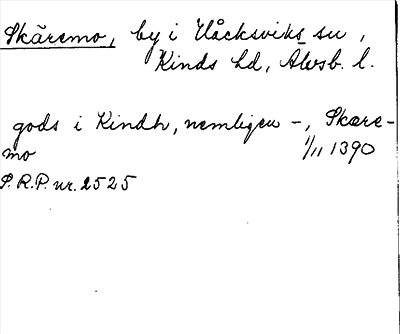 Skäremo, by i Håcksviks sn,
Kinds hd, Älvsb. l.
gods i Kindh, nemligen -, Skære-
mo 1/11 1390
S.R.P. nr. 2525